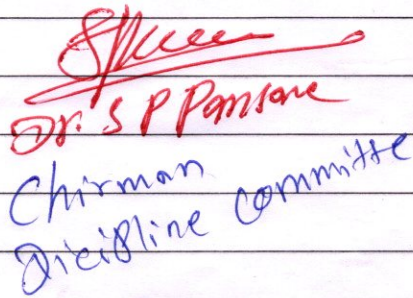 Dr. S P Pansare
Chirman
Dicipline committe